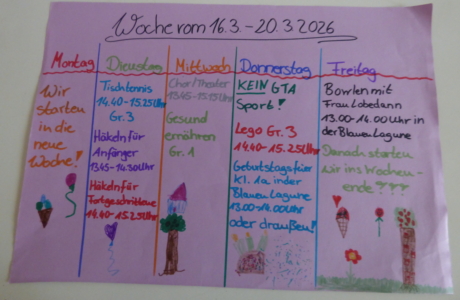 Woche vom 16.3. - 20.3.2026
Montag
Wir
starten
in die
neue
Woche!
Dienstag
Tischtennis
14.40-15.25 Uhr
Gr. 3
Häkeln für
Anfänger
13.45-14.30 Uhr
Häkeln für
Fortgeschrittene
14.40-15.25 Uhr
Mittwoch
Chor/Theater
13.45-15.15 Uhr
Gesund
ernähren
Gr. 1
Donnerstag
KEIN GTA
Sport!
Lego Gr. 3
14.40-15.25 Uhr
Geburtstagsfeier
Kl. 1a in der
Blauen Lagune
13.00-14.00 Uhr
oder draußen!
Freitag
Bowlen mit
Frau Lobedann
13.00-14.00 Uhr in
der Blauen Lagune
Danach starten
wir ins Wochen-
ende ???